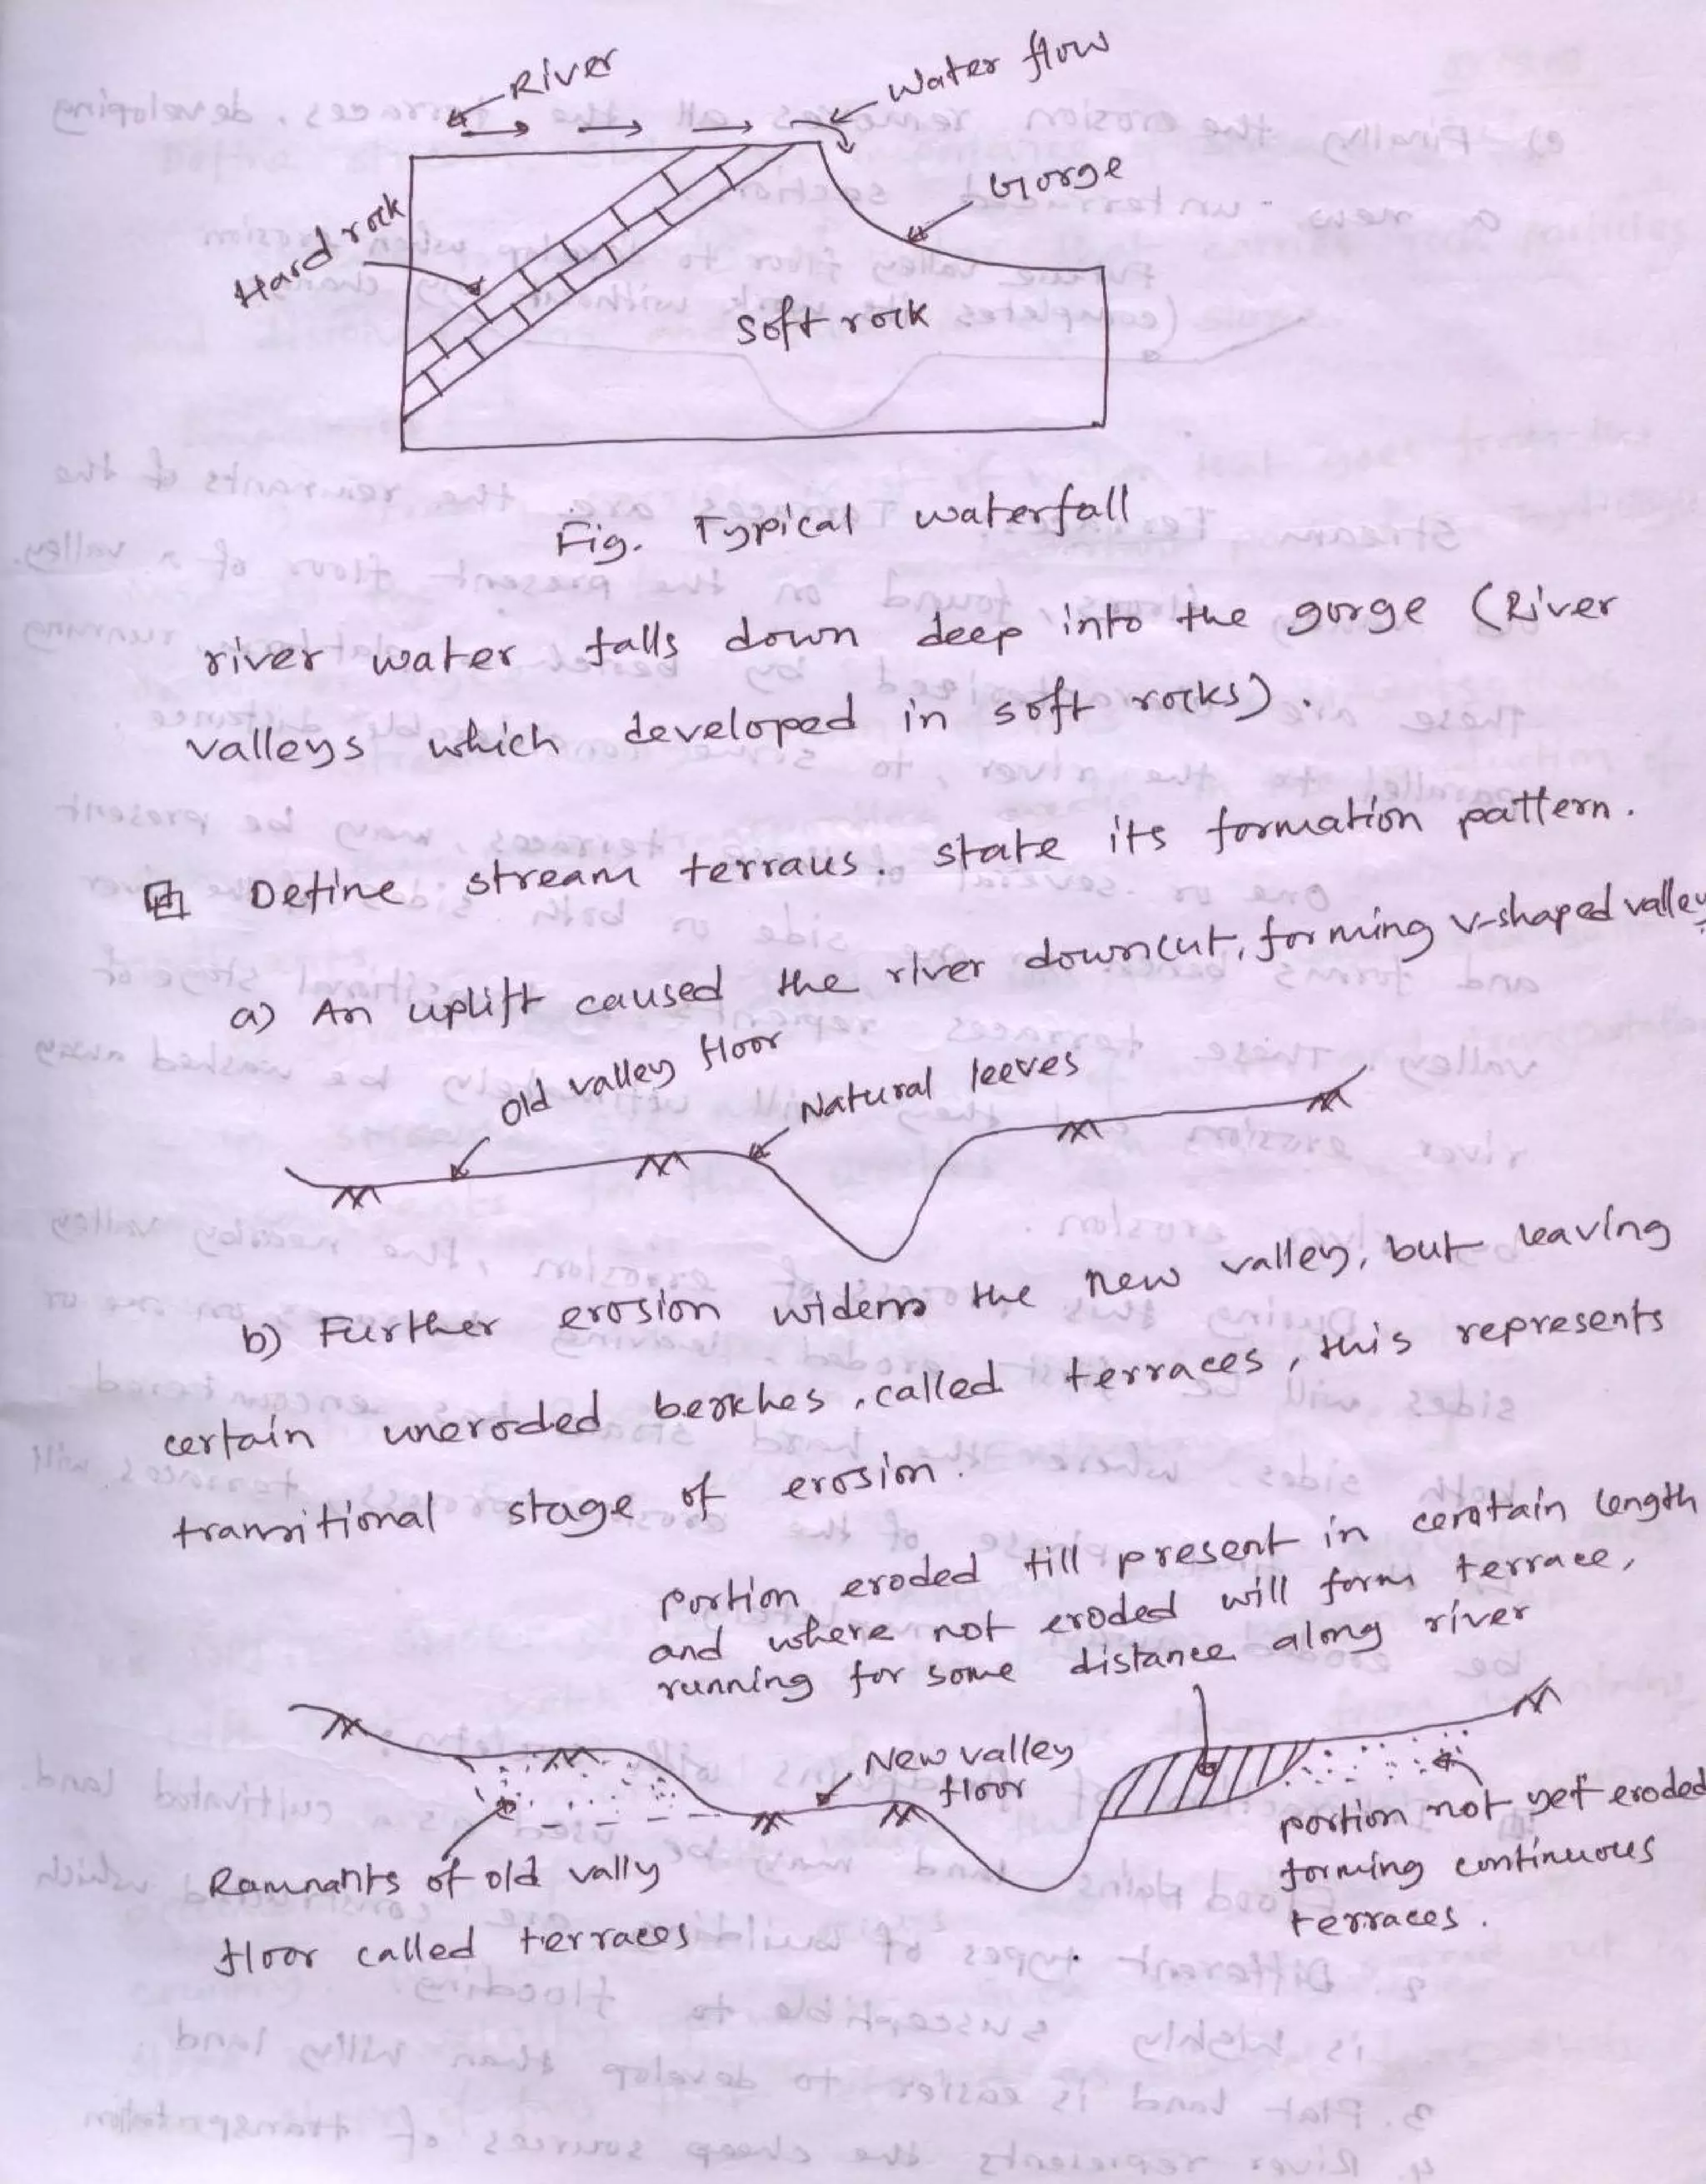 River
Water flow
Gorge
Hard rock
Soft rock
Fig. Typical waterfall
river water falls down deep into the gorge (River
valleys which developed in soft rocks).
Define stream terraus. state its formation pattern.
a) An uplift caused the river downcut, forming V-shaped valley
Old valley floor
Natural leeves
b) Further erosion widens the new valley, but leaving
certain uneroded benches, called terraces, this represents
transitional stage of erosion.
portion eroded till present in certain length
and where not eroded will form terrace,
running for some distance along river
New valley
floor
Ramnants of old vally
floor called terraces
portion not yet eroded
forming continuous
terraces.